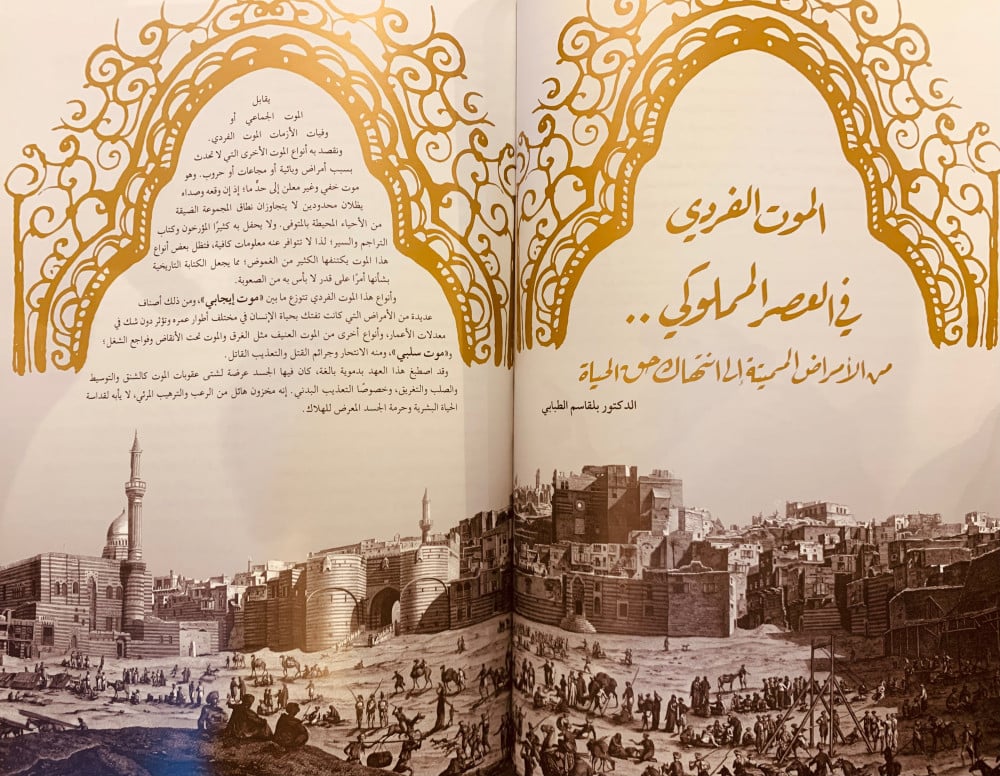 الموت الفردي
في العصر المملوكي ..
من الأمراض المميتة إلى انتهاك حق الحياة
الدكتور بلقاسم الطبابي
يقابل
الموت الجماعي أو
وفيات الأزمات الموت الفردي.
ونقصد به أنواع الموت الأخرى التي لا تحدث
بسبب أمراض وبائية أو مجاعات أو حروب. وهو
موت خفي وغير معلن إلى حدٍّ ما؛ إذ إن وقعه وصداه
يظلان محدودين لا يتجاوزان نطاق المجموعة الضيقة
من الأحياء المحيطة بالمتوفى. ولا يحفل به كثيرًا المؤرخون وكتاب
التراجم والسير؛ لذا لا تتوافر عنه معلومات كافية، فتظل بعض أنواع
هذا الموت يكتنفها الكثير من الغموض؛ مما يجعل الكتابة التاريخية
بشأنها أمرًا على قدر لا بأس به من الصعوبة.
وأنواع هذا الموت الفردي تتوزع ما بين «موت إيجابي»، ومن ذلك أصناف
عديدة من الأمراض التي كانت تفتك بحياة الإنسان في مختلف أطوار عمره وتؤثر دون شك في
معدلات الأعمار، وأنواع أخرى من الموت العنيف مثل الغرق والموت تحت الأنقاض وفواجع الشغل؛
و«موت سلبي»، ومنه الانتحار وجرائم القتل والتعذيب القاتل.
وقد اصطبغ هذا العهد بدموية بالغة، كان فيها الجسد عرضة لشتى عقوبات الموت كالشنق والتوسيط
والصلب والتغريق، وخصوصًا التعذيب البدني. إنه مخزون هائل من الرعب والترهيب المرئي، لا يأبه لقداسة
الحياة البشرية وحرمة الجسد المعرض للهلاك.